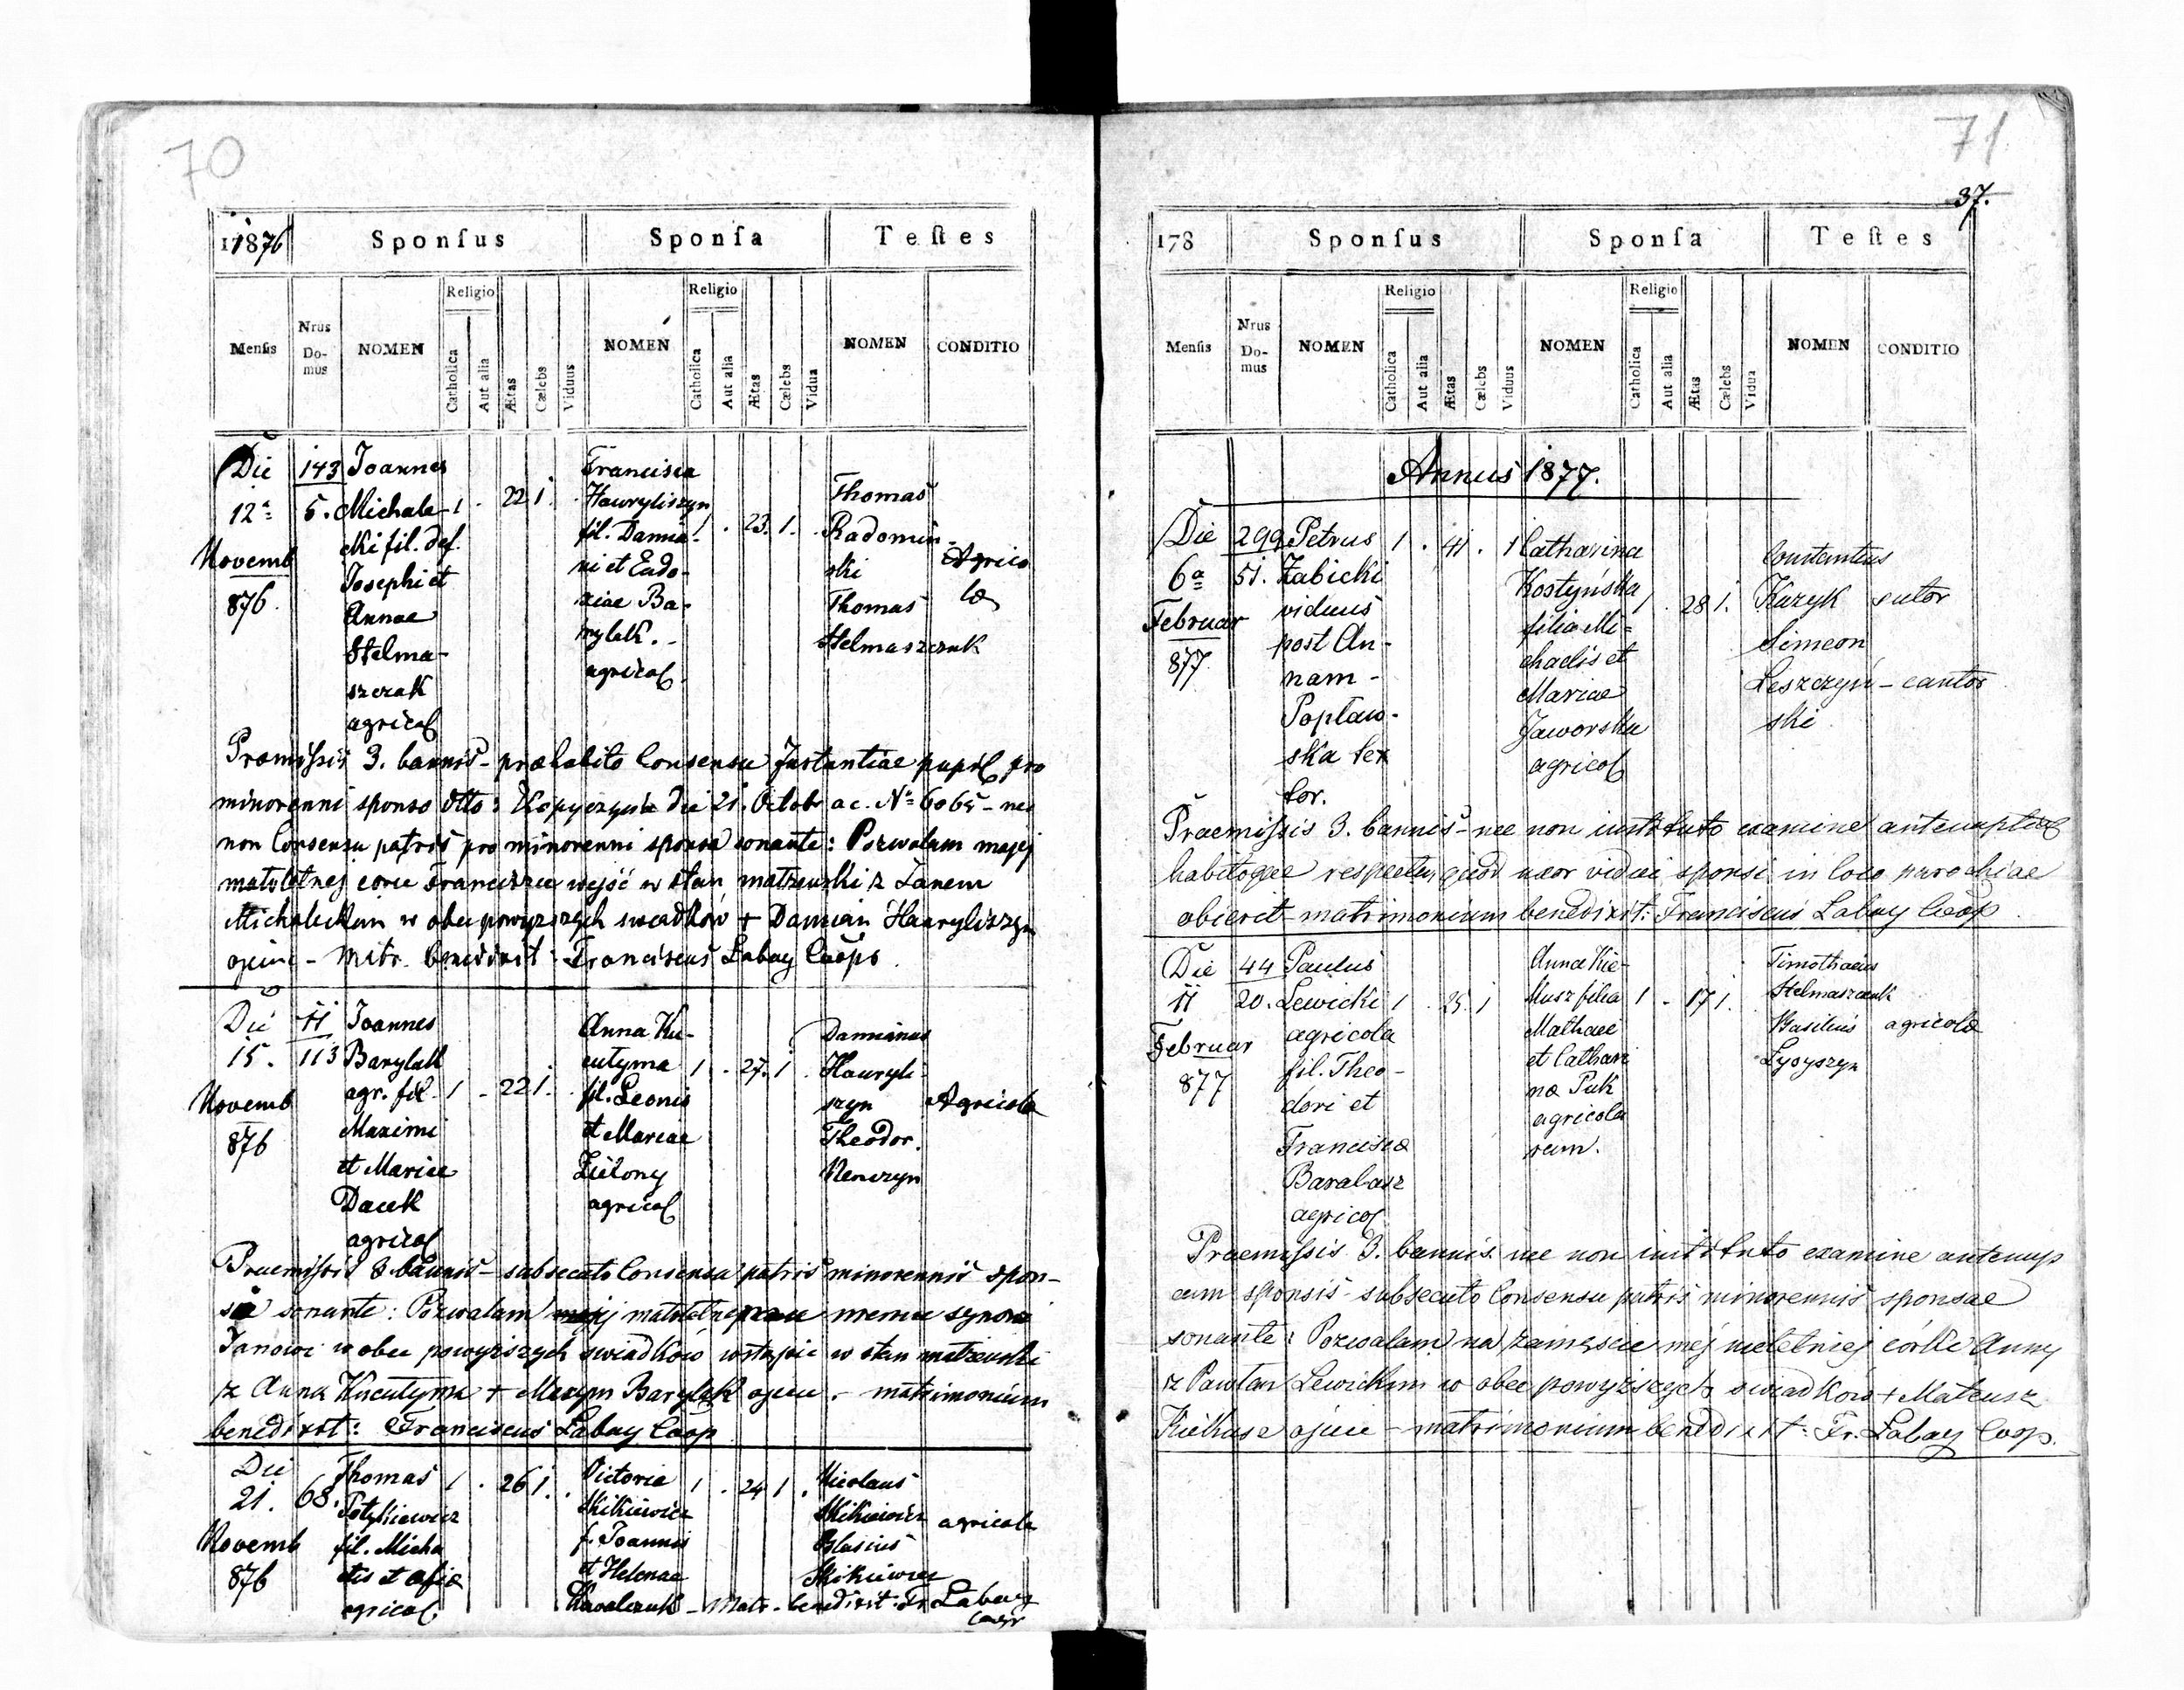 70
11876
Sponſus
Sponſa
Teſtes
Menſis
Nrus Do-mus
NOMEN
Religio
Catholica
Aut alia
Ætas
Cælebs
Viduus
NOMEN
Religio
Catholica
Aut alia
Ætas
Cælebs
Vidua
NOMEN
CONDITIO
Die
12a
Novemb
876
143
5.
Joannes
Michale-
cki fil. def.
Josephi et
Annae
Stelma-
szczak
agricol
1 . 22 1 .
Francisca
Hawryliszyn
fil. Damia-
ni et Eudo-
xiae Ba-
rylak. -
agricol
1 . 23. 1.
Thomas
Radomiń-
ski
Thomas
Stelmaszczuk
Agrico
lae
Premissis 3. bannis - praehabito Consensu Instantiae pupil pro
minorenni sponso dtto: Kopyczyńce die 21. Octob a c. No 6065 - nec
non Consensu patris pro minorenni sponsa sonante: Pozwalam mojej
małoletnej córce Franciszce wejść w stan małżeński z Janem
Michaleckim w obec powyższych swiadków + Damian Hawryliszyn
ojciec - Mtr. benedixit: Franciscus Labay Coop
Die
15.
Novemb
876
11
113
Joannes
Barylak
agr. fil.
Maximi
et Mariae
Dacek
agricol
1 - 22 1 .
Anna Ku-
cutyma
fil. Leonis
et Mariae
Zielony
agricol
1 . 27. 1 .
Damianus
Hawryli-
szyn
Theodor.
Agricola
Praemissis 3 bannis - subsecuto Consensu patris minorennis spon-
si sonante: Pozwalam memu synowi
Janowi w obec powyższych swiadków wstąpić w stan małżeński
z Anna Kucutyma + Maxym Barylak ojciec - matrimonium
benedixit: Franciscus Labay Coop
Die
21.
Novemb
876
68.
Thomas
Potykiewicz
fil. Micha
elis et
agricol
1 . 26 1 .
Victoria
Skikiewicz
f. Joannis
et Helenae
Kowalczuk
1 . 24 1 .
Nicolaus
Skikiewicz
Blasius
Skikiewicz
agricola
- Matr. benedixit: Fr Labay
Coop
71
37.
178
Sponſus
Sponſa
Teſtes
Menſis
Nrus Do-mus
NOMEN
Religio
Catholica
Aut alia
Ætas
Cælebs
Viduus
NOMEN
Religio
Catholica
Aut alia
Ætas
Cælebs
Vidua
NOMEN
CONDITIO
Annus 1877.
Die
6a
Februar
877
299
51.
Petrus
Zabicki
viduus
post An-
nam -
Popław-
ska tex
tor.
1 . 41 . 1
Catharina
Kostyńska
filia Mi-
chaelis et
Mariae
Jaworska
agricol
1 . 28 1.
Constantius
Kuzyk
Simeon
Leszczyń-
ski
sutor
cantor
Praemissis 3. bannis - nec non instituto examine antenuptial
habitoque respectu, quod uxor vidui sponsi in loco parochiae
obierit - matrimonium benedixit: Franciscus Labay Coop
Die
11
Februar
877
44
20.
Paulus
Lewicki
agricola
fil. Theo-
dori et
Francisca
Barabasz
agricol
1 . 25. 1
Anna Kie-
łkusz filia
Mathaei
et Cathari
na Puk
agricola
rum.
1 - 17 1.
Timothaeus
Stelmaszczuk
Basilius
Lysyszyn
agricolae
Praemissis 3. bannis. nec non instituto examine antenup
cum sponsis - subsecuto Consensu patris minorennis sponsae
sonante: Pozwalam na zamęscie mej nieletniej córki Anny
z Pawłem Lewickim w obec powyższych swiadków + Mateusz
Kiełkusz ojciec - matrimonium benedixit: Fr. Labay Coop.